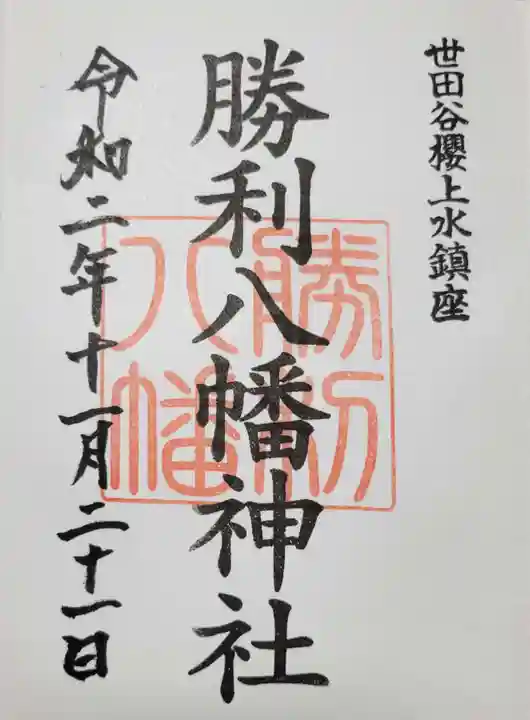 世田谷櫻上水鎮座
勝利八幡神社
勝利
八幡
令和二年十一月二十一日